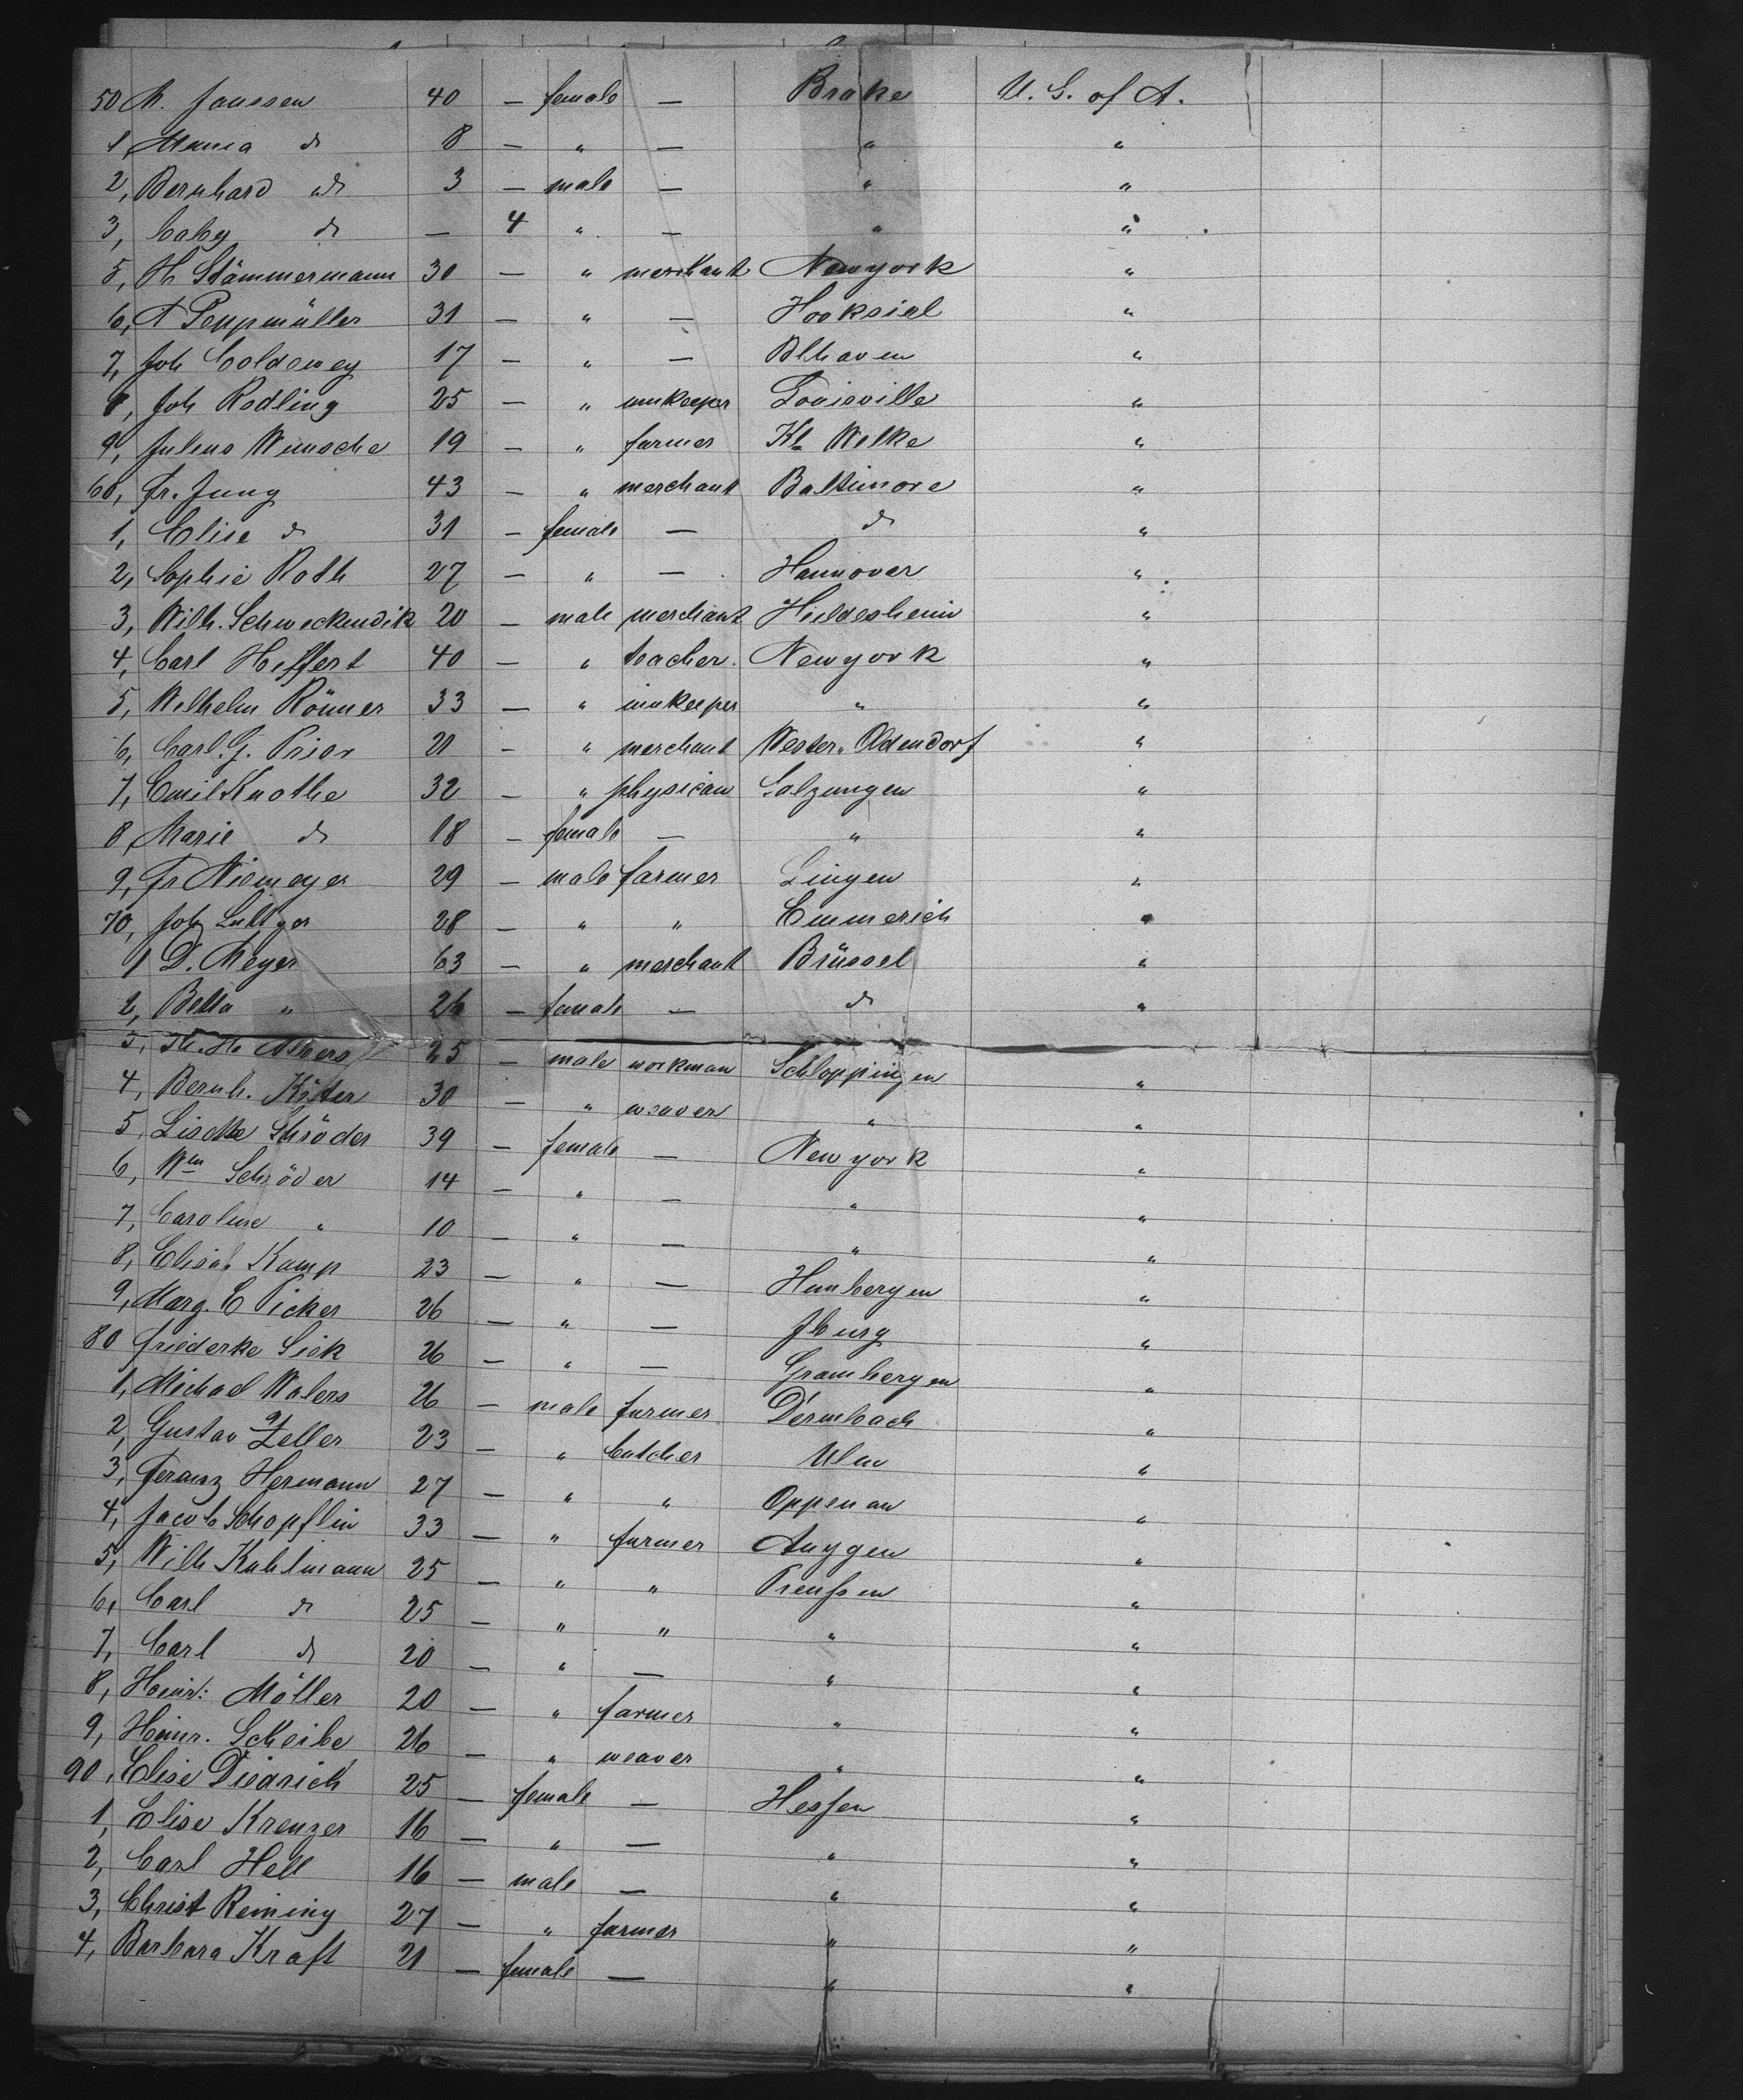 50 M. Janssen 40 — female — Brake U. S. of A.
1, Maria do 8 — " — " "
2, Bernhard do 3 — male — " "
3, baby do — 4 " — " "
5, H Stämmermann 30 — " merchant Newyork "
6, A Poppmüller 31 — " — Hooksiel "
7, Joh Coldewey 17 — " — Blhaven "
8, Joh Rodling 25 — " innkeeper Louisville "
9, Julius Wünsche 19 — " farmer Kl. Welka "
60, Fr. Jung 43 — " merchant Baltimore "
1, Elise do 31 — female — do "
2, Sophie Roth 27 — " — Hannover "
3, Wilh. Schweckendik 20 — male merchant Hildesheim "
4, Carl Heffert 40 — " teacher. Newyork "
5, Wilhelm Römer 33 — " innkeeper " "
6, Carl. G. Prior 21 — " merchant Wester. Oldendorf "
7, Emil Knothe 32 — " physican Salzungen "
8, Marie do 18 — female — " "
9, Fr Niemeyer 29 — male farmer Lingen "
70, Joh 28 — " " Emmerich "
1 D. Meyer 63 — " merchant Brüssel "
2, Bella " 26 — female — do "
3, H. Albers 25 — male workman Schloppingen "
4, Bernh. Köter 30 — " weaver " "
5, Schröder 39 — female — Newyork "
6, Wm Schröder 14 — " — " "
7, Caroline " 10 — " — " "
8, Elisab. Kamp 23 — " — Hunbergen "
9, Marg. E Picker 26 — " — Jburg "
80 Friederke Siek 26 — " — Grambergen "
1, Michael Walers 26 — male farmer. Dermbach "
2, Gustav Zeller 23 — " butcher Ulm "
3, Feranz Hermann 27 — " " Oppenau "
4, Jacob Schopflin 33 — " farmer Auggen "
5, Wilh Kuhlmann 25 — " " Preußen "
6, Carl do 25 — " " " "
7, Carl do 20 — " — " "
8, Heinr: Möller 20 — " farmer " "
9, Heinr. Scheibe 26 — " weaver " "
90, Elise Diedrich 25 — female — Hessen "
1, Elise Kreuzer 16 — " — " "
2, Carl Hell 16 — male — " "
3, Christ Reining 27 — " farmer " "
4, Barbara Kraft 21 — female — " "